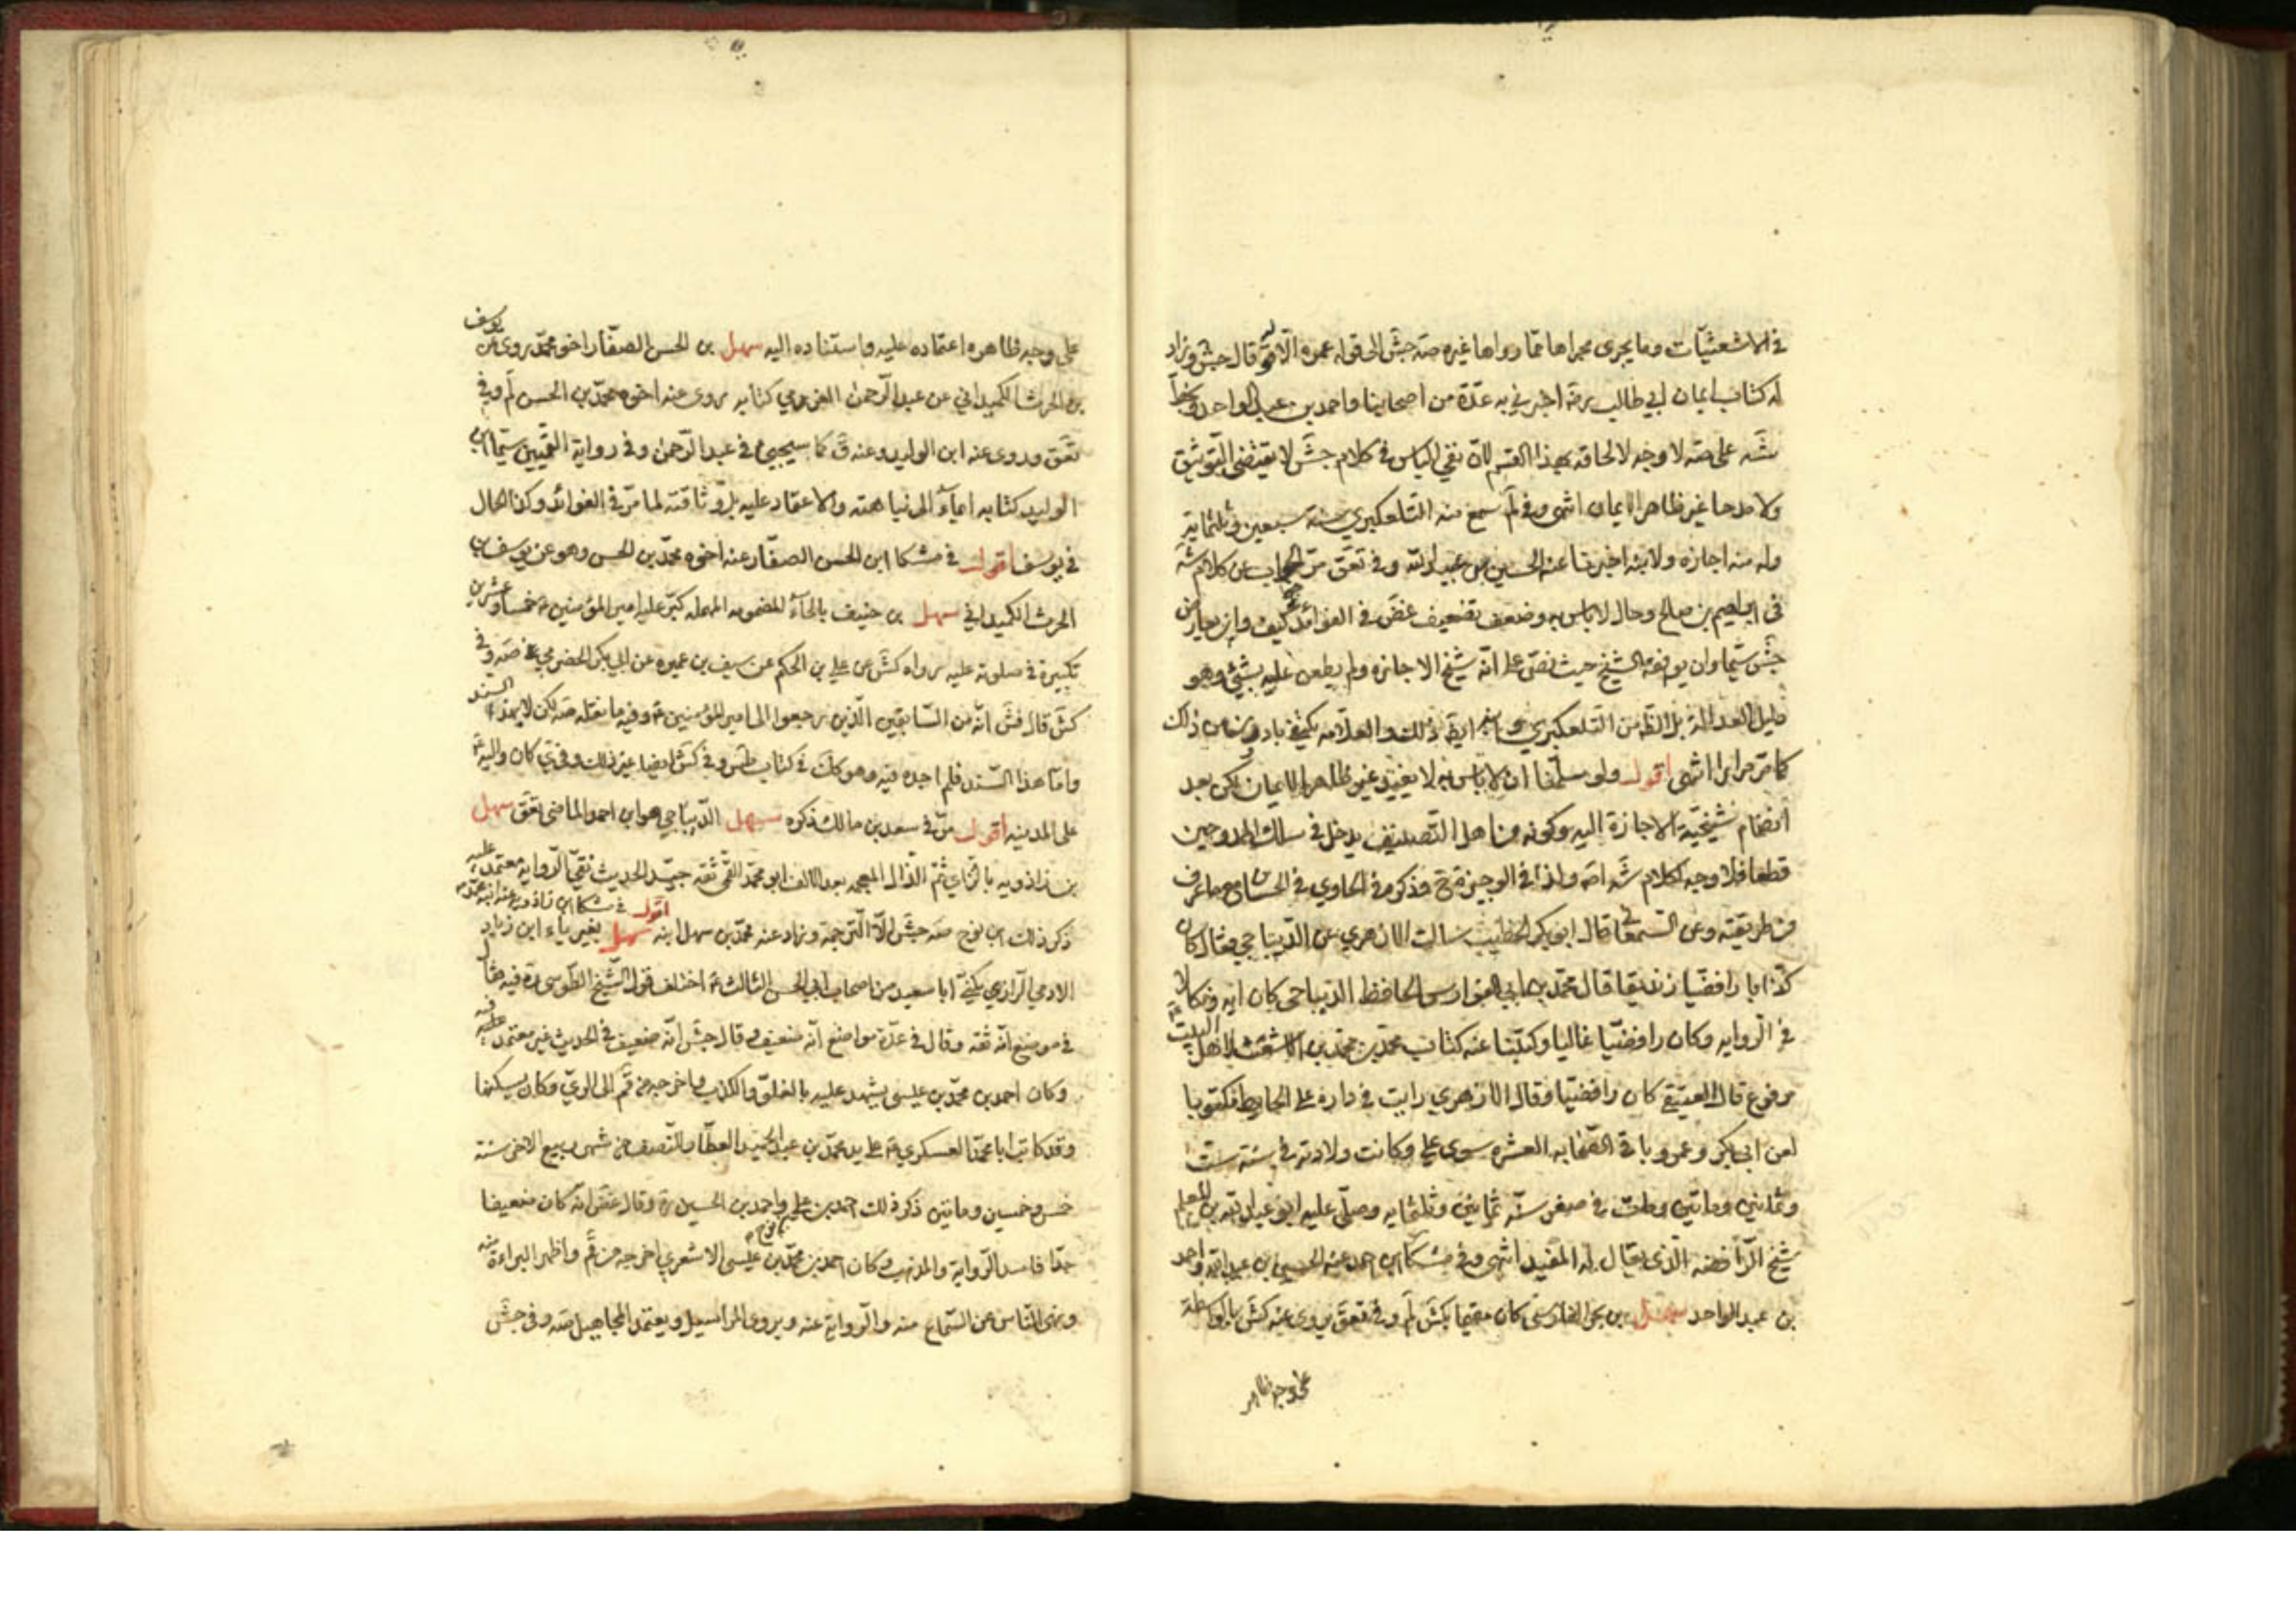 في الاشعثيّات وما يجرى مجراها ممّا رواها غيره صه جش الى قوله عمره الا وفيه قال جش وزاد
له كتاب ايمان ابي طالب رضه اخبرني به عدّة من اصحابنا واحمد بن عبد الواحد وبخط
شه على صه لا وجه لالحاقه بهذا القسم لانّ نفي الباس في كلام جش لا يقتضي التّوثيق
ولا مدحا غير ظاهر الايمان انتهى وفي لم سمع منه التلعكبري سنة سبعين وثلثمائة
وله منه اجازه ولابنه اخبرنا عنه الحسين بن عبيد الله وفي تعق مرّ الجواب عن كلام شه
في ابراهيم بن صالح وحال لا باس به وضعف تضعيف غض في الفوائد كيف وان يعارض
جش سيّما وان يوافقه الشيخ حيث نصّ على انّه شيخ الاجازه ولم يطعن عليه بشئ وهو
دليل العدالة بل الظّ من التلعكبري ايضا ذلك والعلّامه
كما مرّ مرارا انتهى اقول ولو سلّمنا ان لا باس به لا يفيد غير ظاهر الايمان لكن بعد
انضمام شيخيّة الاجازة اليه وكونه من اهل التّصنيف يدخل في سلك الممدوحين
قطعا فلا وجه لكلام شه اصلا ولذا في الوجيزة ح وذكره في الحاوي في الحسان مع ما عرف
من طريقته وعن السّمعاني قال ابو بكر الخطيب سالت الازهري عن الدّيباجي فقال كان
كذّابا رافضيّا زنديقا قال محمّد بن ابي الفوارس الحافظ الديباجي كان اية ونكالا
في الرّوايه وكان رافضيّا غاليا وكتبنا عنه كتاب محمّد بن محمّد بن الاشعث لاهل البيت
مرفوع قال العتيقي كان رافضيّا وقال الازهري رايت في داره على الحايط مكتوبا
لعن ابي بكر وعمر وباقي الصّحابه العشره سوى علي وكانت ولادته في سنة ست
وثمانين ومأتين ومات في صفر سنة ثمانين وثلثمايه وصلّى عليه ابو عبد الله بن المعلم
شيخ الرّافضه الذي يقال له المفيد انتهى وفي مشكا ابن احمد عنه الحسين بن عبيد الله واحمد
بن عبد الواحد سهل بن بحر الفارسي كان مقيما بكش لم وفي تعق يروى عنه كش بالواسطة
على وجه ظاهر
على وجه ظاهره اعتماده عليه واستناده اليه سهل بن الحسن الصفّار اخو محمّد روى عن يوسف
بن الحرث الكميداني عن عبد الرّحمن العرزمي كتابه روى عنه اخوه محمّد بن الحسن لم وفي
تعق وروى عنه ابن الوليد وعنه ق كما سيجيئ في عبد الرّحمن وفي رواية القميين سيّما ابن
الوليد كتابه ايماء الى نباهته والاعتماد عليه بل وثاقته لما مرّ في الفوائد وكذا الحال
في يوسف اقول في مشكا ابن الحسن الصفّار عنه اخوه محمّد بن الحسن وهو عن يوسف بن
الحرث الكميداني سهل بن حنيف بالحاء المضمومه المهمله كبّر عليه امير المؤمنين ع خمسا وعشرين
تكبيرة في صلوته عليه رواه كش عن علي بن الحكم عن سيف بن عميره عن ابي بكر الحضرمي صه وفي
كش قال فش انّه من السّابقين الّذين رجعوا الى امير المؤمنين ع وفيه ما نقله صه لكن لا بهذا السند
وامّا هذا السّند فلم اجده فيه وهو كك في كتاب طس وفي كش ايضا غير ذلك وفي ي كان واليه ع
على المدينه اقول مرّ في سعد بن مالك ذكره سهل الدّيباجي هو ابن احمد الماضي تعق سهل
بن زاذويه بالزّاي ثم الذّال المعجمه بعد الالف ابو محمّد القمّي ثقه جيّد الحديث نقيّ الرّوايه معتمد عليه
اقول في مشكا ابن زاذويه عنه ابنه محمّد
ذكر ذلك ابن نوح صه جش الّا التّرجمة وزاد عنه محمّد بن سهل ابنه سهل بغير ياء ابن زياد
الادمي الرّازي يكنّى ابا سعيد من اصحاب ابي الحسن الثالث ع اختلف قول الشّيخ الطّوسي ره فيه فقال
في موضع انّه ثقه وقال في عدّة مواضع انّه ضعيف وقال جش انّه ضعيف في الحديث غير معتمد عليه فيه
وكان احمد بن محمّد بن عيسى يشهد عليه بالغلوّ والكذب واخرجه من قم الى الري وكان يسكنها
وقد كاتب ابا محمّد العسكري ع على يد محمّد بن عبد الحميد العطّار للنّصف من شهر ربيع الاخر سنة
خمس وخمسين ومأتين ذكر ذلك احمد بن علي بن نوح واحمد بن الحسين ره وقال غض انّه كان ضعيفا
جدّا فاسد الرّواية والمذهب وكان احمد بن محمّد بن عيسى الاشعري اخرجه من قم واظهر البراءة منه
ونهى النّاس عن السّماع منه والرّواية عنه ويروى المراسيل ويعتمد المجاهيل صه وفي جش